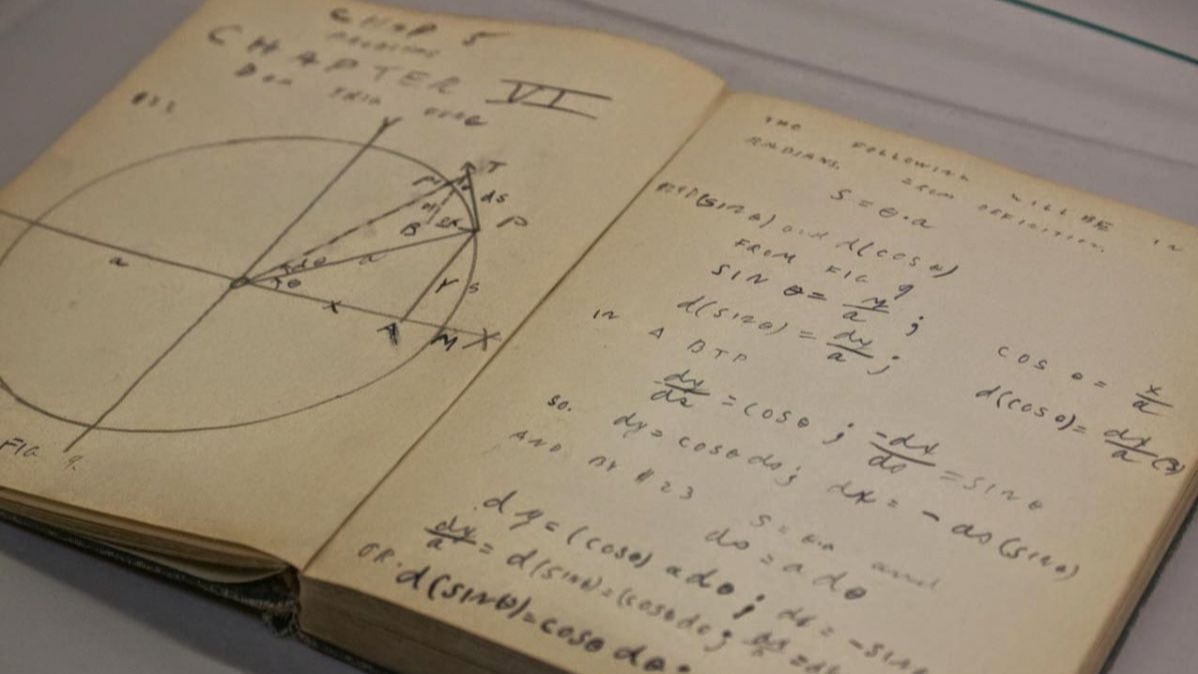 CHAP 5
PROBLEMS
CHAPTER VI
DON TRIG FUNC
#23
Y
T
ds
P
B
a
dθ
a
θ
Y
s
X
A
M
X
FIG 9.
THE FOLLOWING WILL BE IN
RADIANS. FROM DEFINITION.
S = θ.a
FIND d(SIN θ) and d(COS θ)
FROM FIG 9
SIN θ = y/a ; COS θ = x/a
d(SIN θ) = dy/a ; d(COS θ) = dx/a (3)
IN Δ BTP
dy/ds = COS θ ; -dx/ds = SIN θ
SO. dy = COS θ ds ; dx = - ds (SIN θ)
AND BY #23 S = θ.a and
ds = a dθ
dy = (COS θ) a dθ ; dx = - SIN
OR. dy/a = d(SIN θ) = (COS θ dθ ; dx/a = d
d(SIN θ) = COS θ dθ.